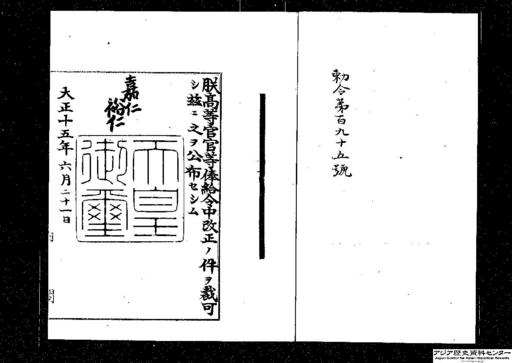 勅令第百九十五號
朕高等官官等俸給令中改正ノ件ヲ裁可
シ茲ニ之ヲ公布セシム
嘉仁
裕仁
天皇
御璽
大正十五年六月二十一日
内閣
アジア歴史資料センター
Japan Center for Asian Historical Records